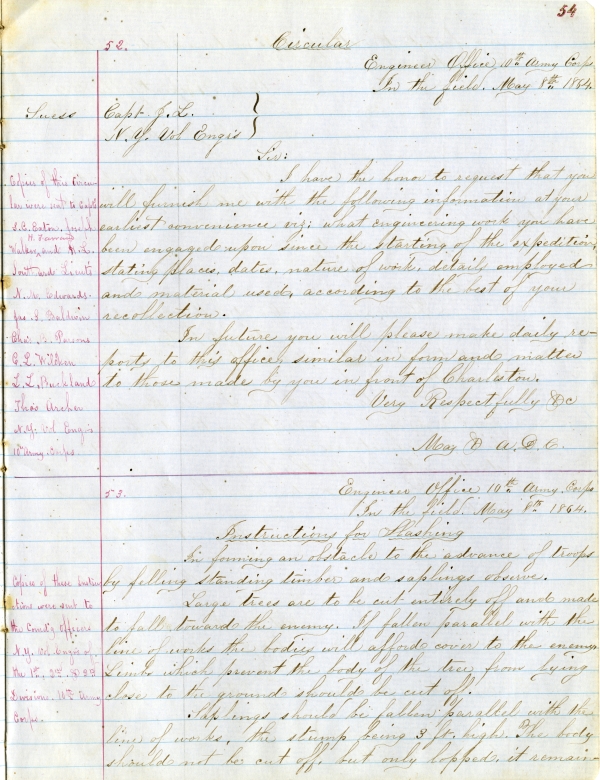 54
52.
Circular
Engineer Office 10th Army Corps
In the field. May 8th 1864.
Suess
Capt J. L.
N. Y. Vol Engrs
Sir:
I have the honor to request that you
will furnish me with the following information at your
earliest convenience viz; what engineering work you have
been engaged upon since the starting of the expedition,
stating places, dates, nature of work, detail employed
and material used, according to the best of your
recollection.
In future you will please make daily re-
ports to this office, similar in form and matter
to those made by you in front of Charleston.
Very Respectfully &c
May & A. D. C.
Copies of this Circu-
lar were sent to Capts
S. C. Eaton,
and
and Lieuts
N. M. Edwards.
Jno. S. Baldwin
Chs. B. Parsons
E. L. Wilthen
L. L. Buckland
Thos Archer
N. Y. Vol Engrs
10th Army Corps
53.
Engineer Office 10th Army Corps
In the field. May 8th 1864.
Instructions for Slashing
In forming an obstacle to the advance of troops
by felling standing timber and saplings observe.
Large trees are to be cut entirely off and made
to fall toward the enemy. If fallen parallel with the
line of works the bodies will afford cover to the enemy.
Limbs which prevent the body of the tree from lying
close to the ground should be cut off.
Saplings should be fallen parallel with the
line of works, the stump being 3 ft. high. The body
should not be cut off, but only lopped, it remain-
Copies of these Instruc
tions were sent to
the Comdg Officers
N. Y. Vol Engrs of
the 1st, 2nd & 3rd
Divisions, 10th Army
Corps.